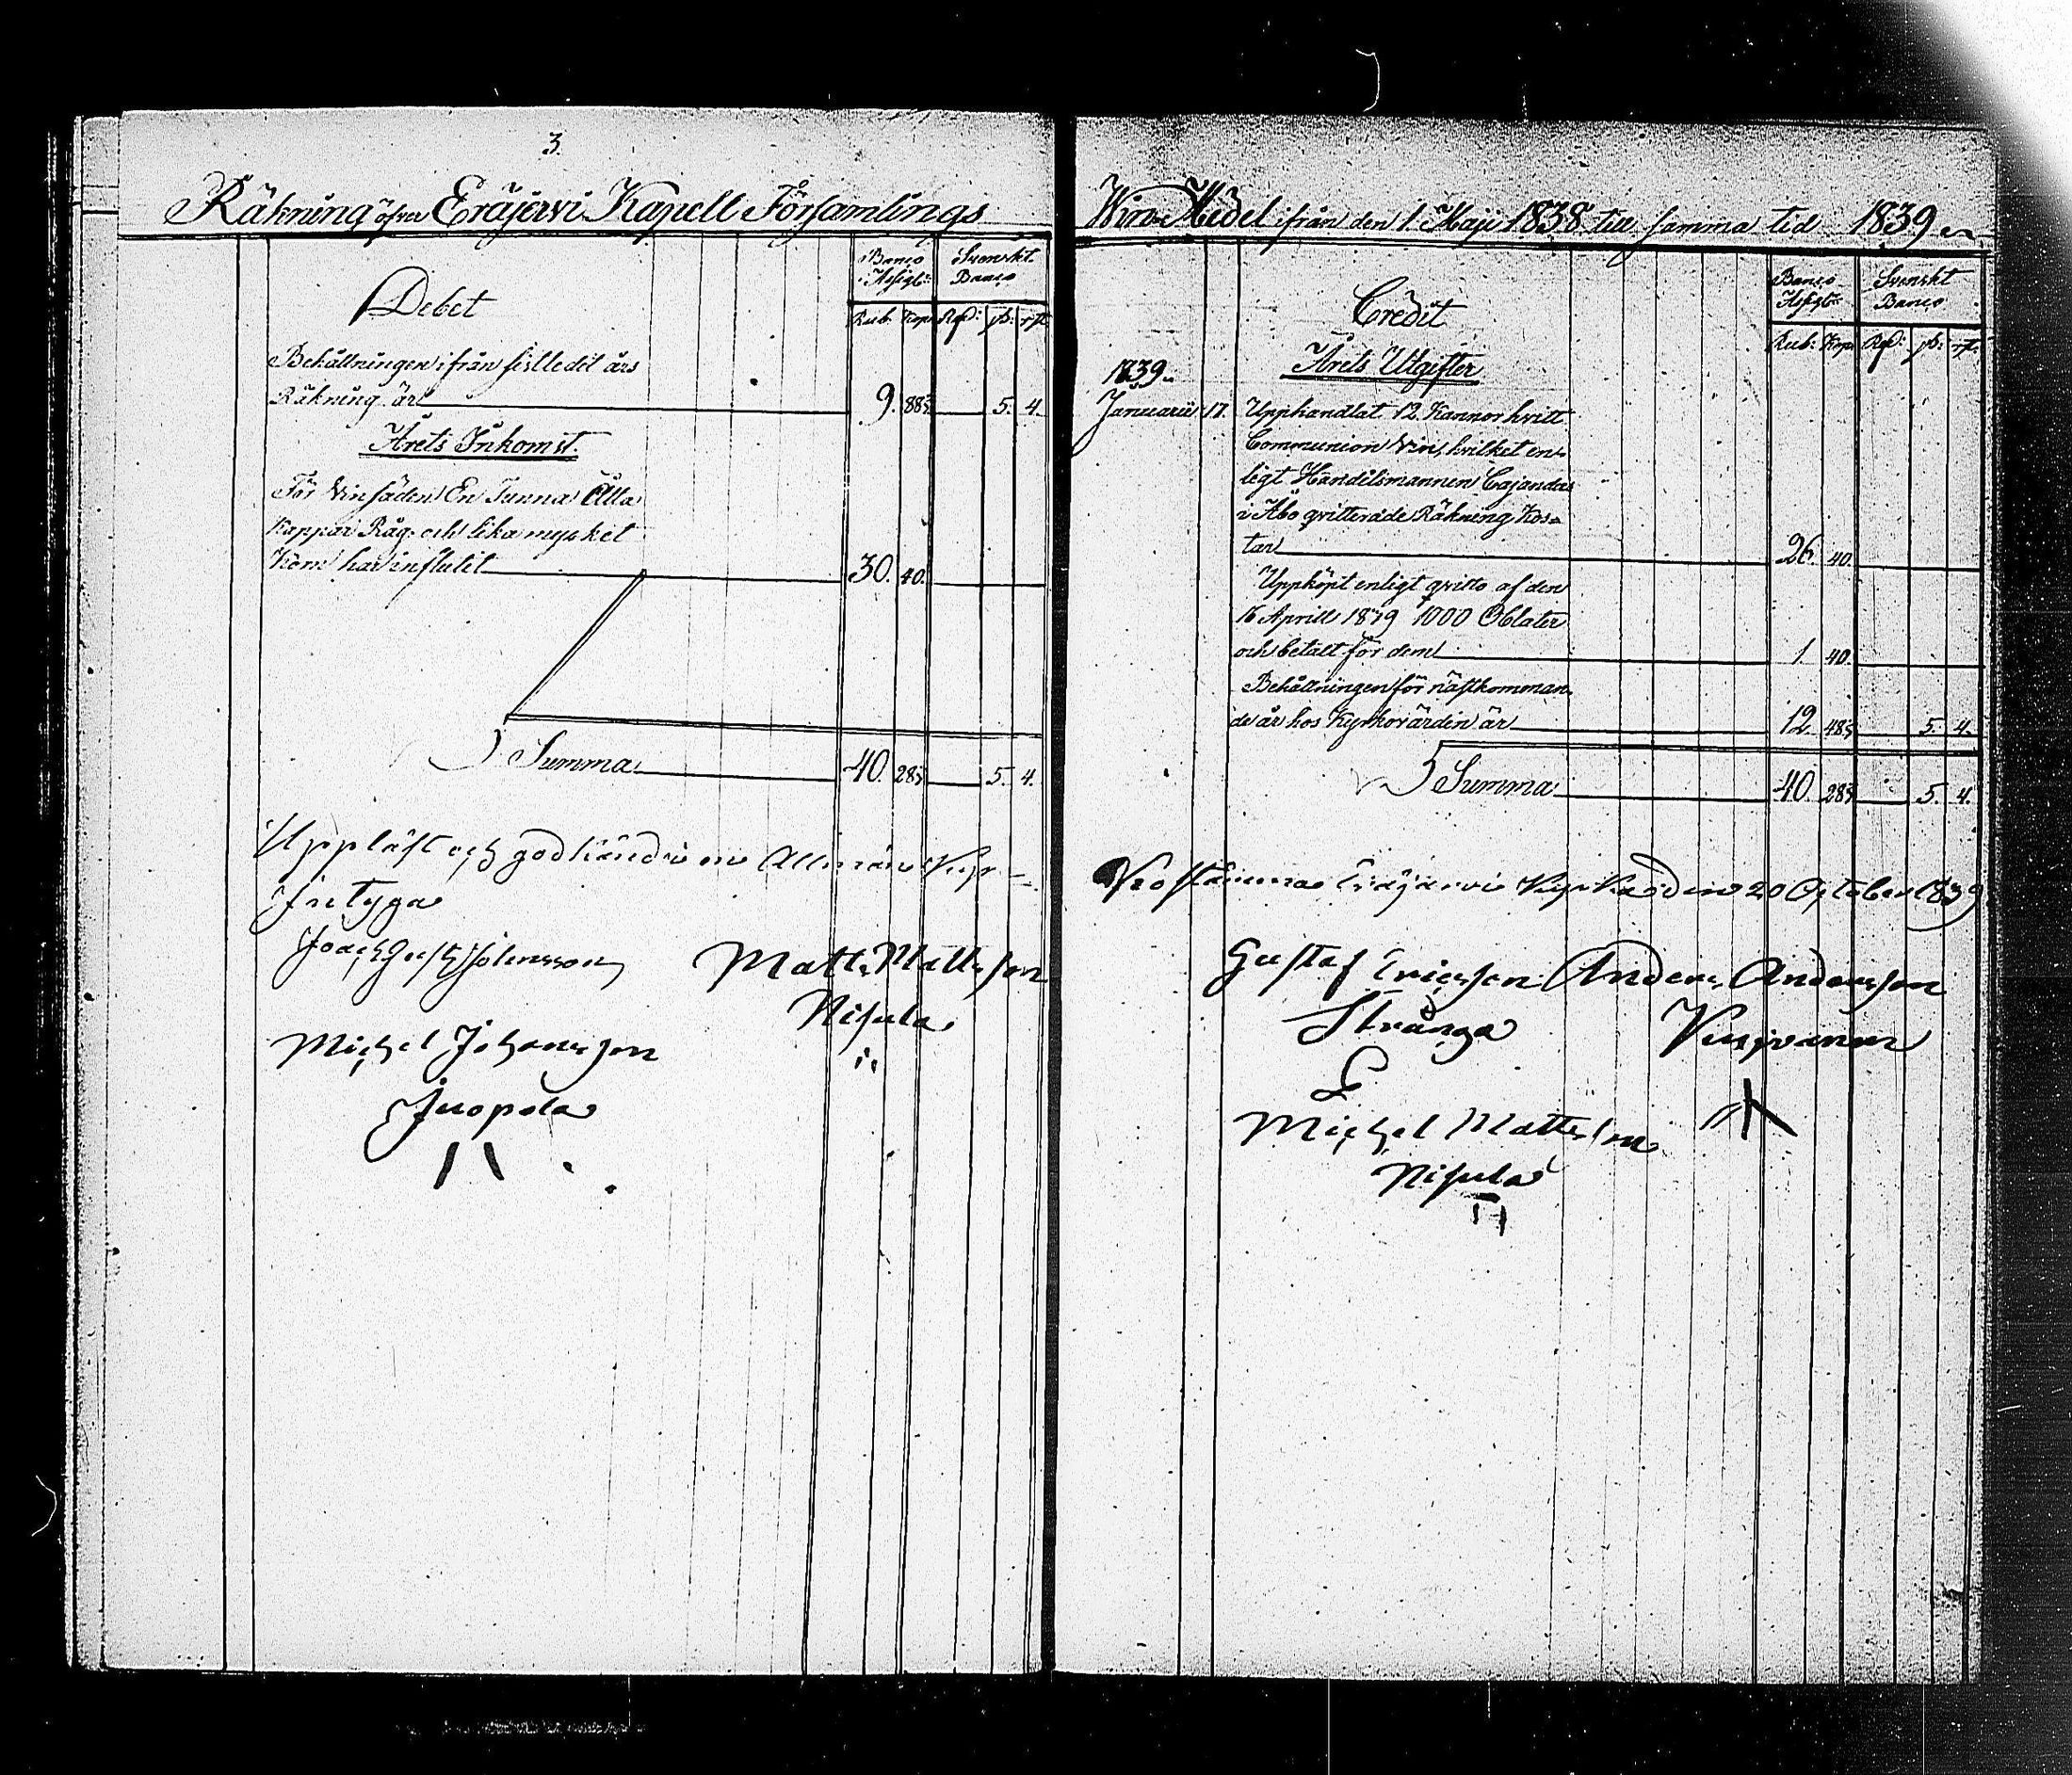 3.
Räkning öfver Eräjerwi Kapell Församlings
Banco Assign: Svenskt Banco
Debet
Rub: Kop: Rd: sk: rst
Behållningen ifrån sistledit års
Räkning är 9. 88 5. 4.
Årets Inkomst.
För Vinsäden En Tunna Åtta
Kappar Råg och lika mycket
Korn har influtit 30. 40.
Summa 40. 28 5. 4.
Uppläst och godkänd i en Allmän Kyr-
Joach Gust Johansson
Matts Mattsson
Nisula
Michel Johansson
Juopola
Win-Medel ifrån den 1. Maji 1838 till samma tid 1839
Banco Assign: Svenskt Banco
Credit
Rub: Kop: Rd: sk: rst
1839
Årets Utgifter
Januarii 17. Upphandlat 12 Kannor hvitt
Communion Vin, hvilket en-
ligt Handelsmannen Cajanders
i Åbo qvitterade Räkning kos-
tar 26. 40.
Uppköpt enligt qvitto af den
16 Aprill 1839 1000 Oblater
och betalt för dem 1. 40.
Behållningen för nästkomman-
de år hos Kyrkovärden är 12. 48 5. 4.
Summa 40. 28 5. 4.
Kostämma Eräjärvi Kyrka den 20 October 1839
Gustaf Ericsson Anders Andersson
Strånga
Michel Mattsson
Nisula